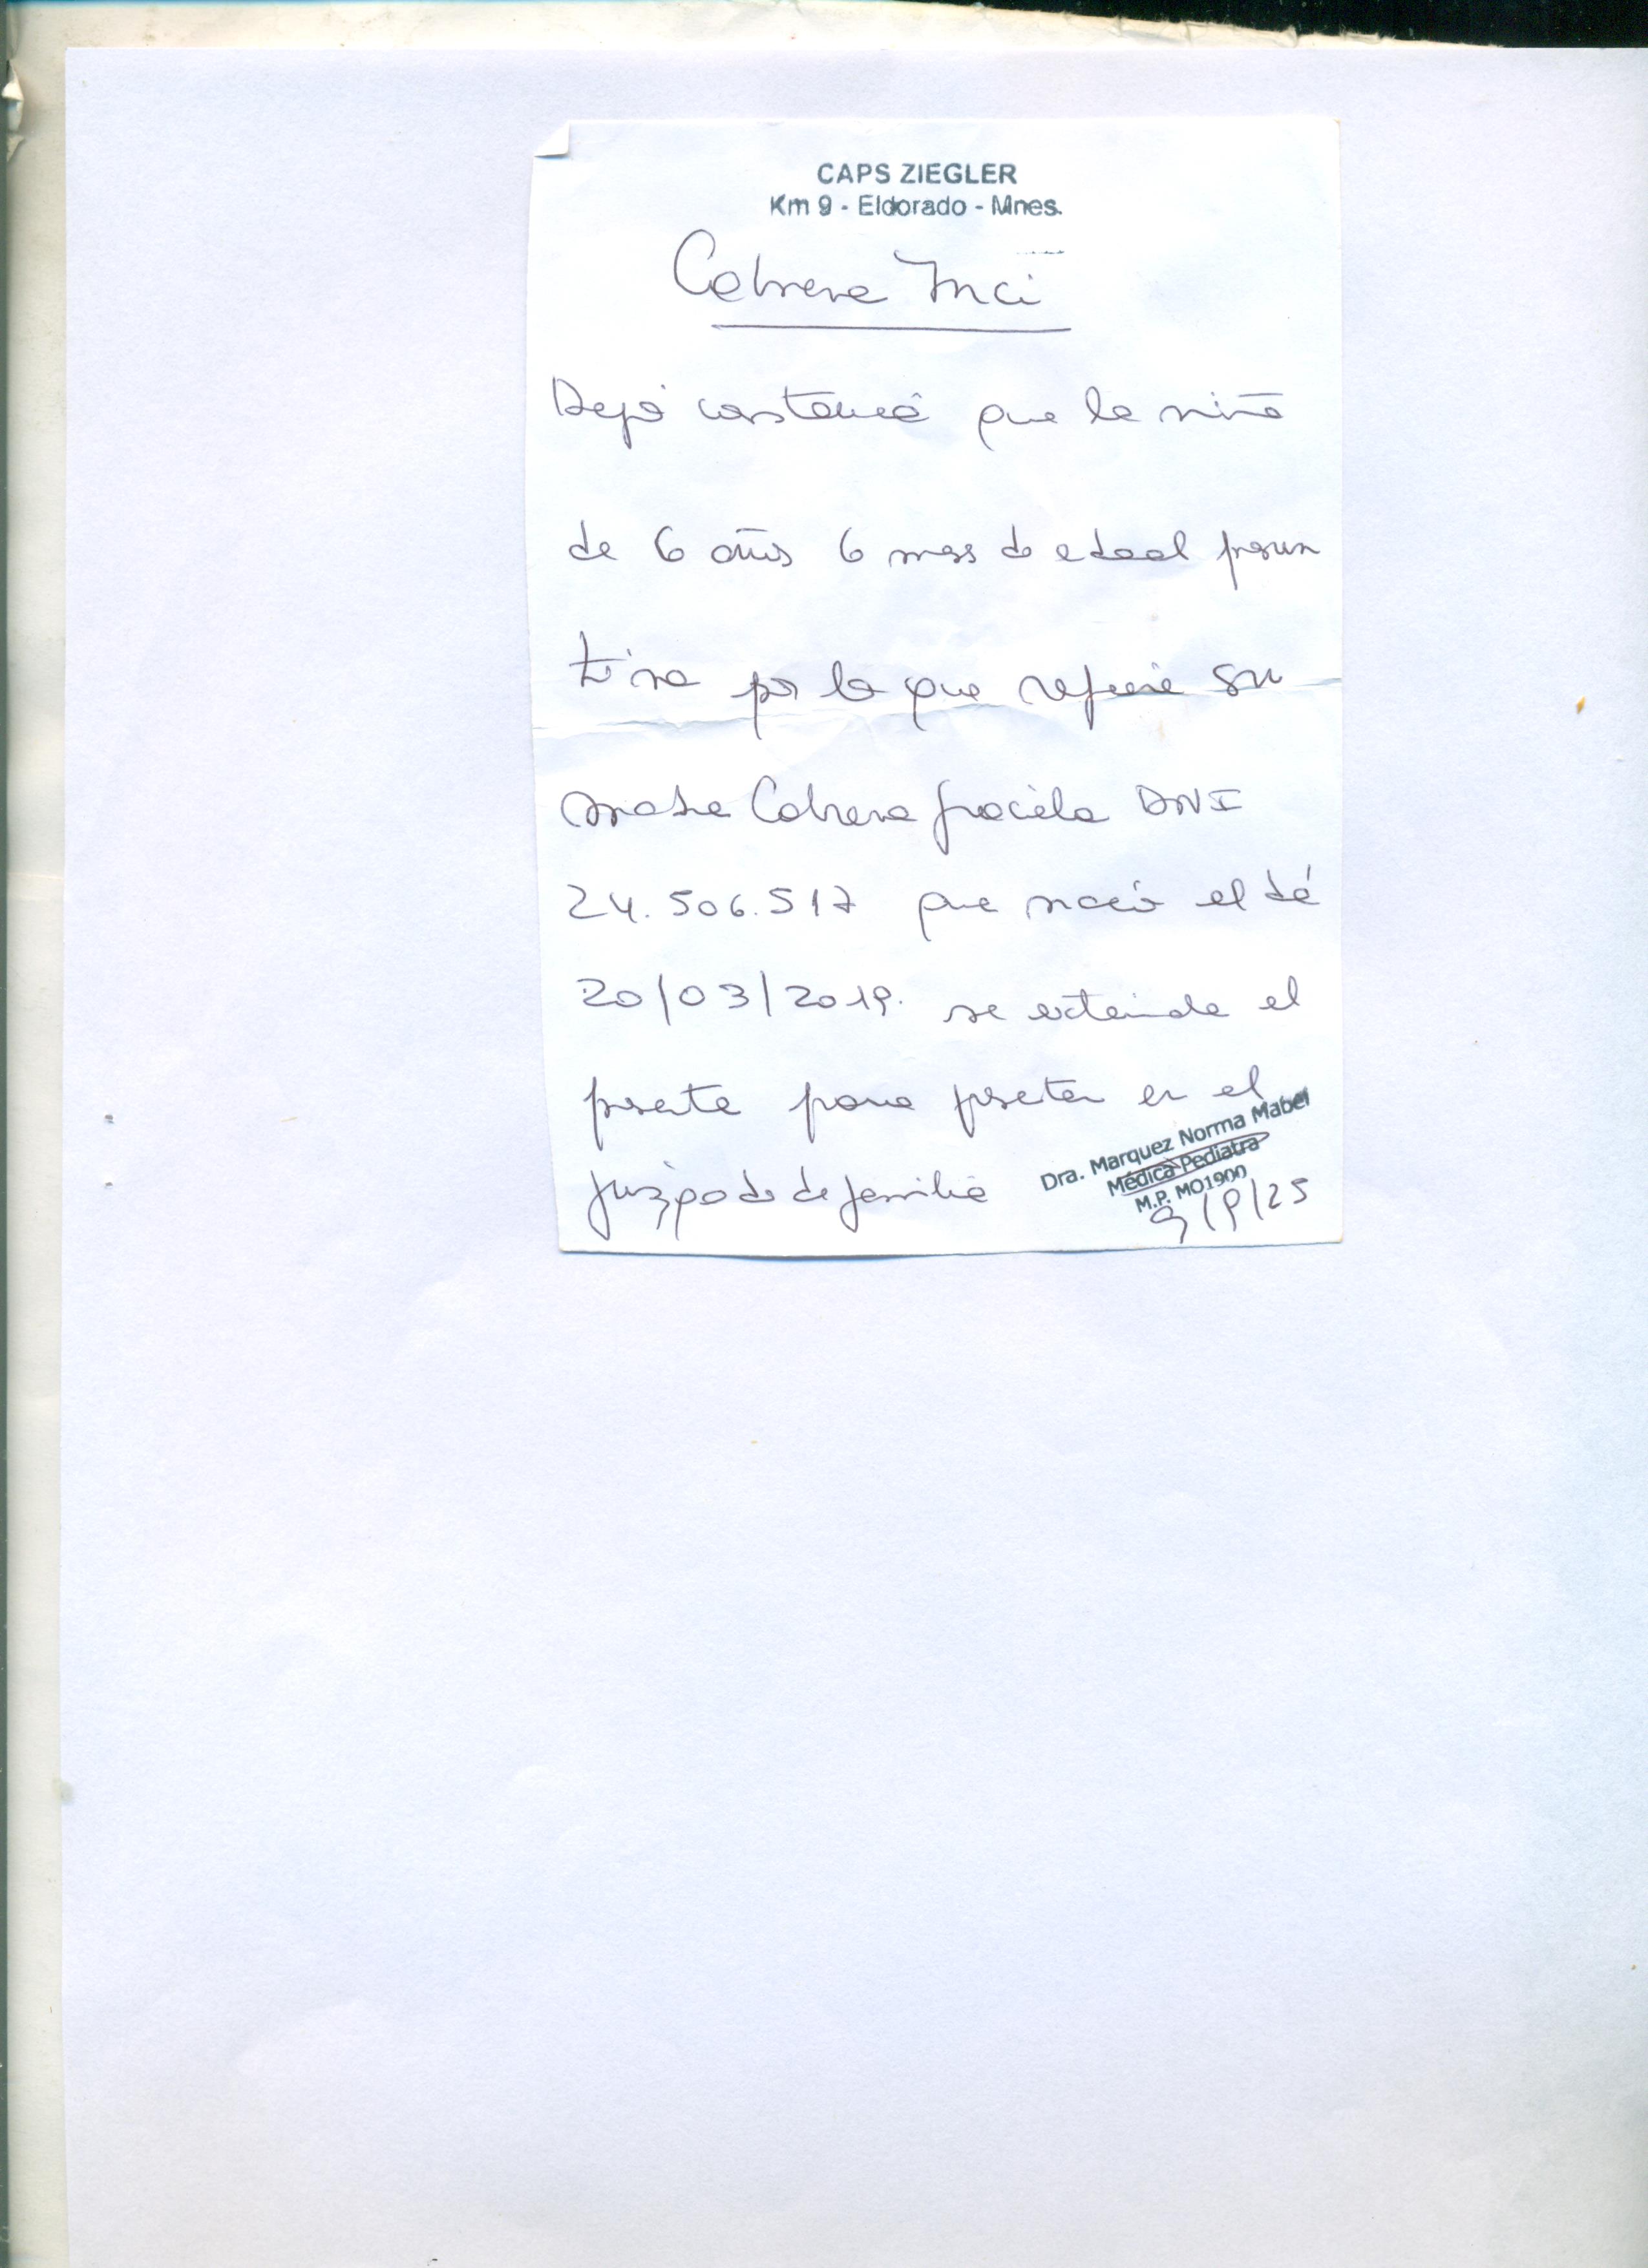 CAPS ZIEGLER
Km 9 - Eldorado - Mnes.
Cabrera Inci
Dejo constancia que la niña
de 6 años 6 mess de edad presun
tiva por lo que refiere su
madre Cabrera Graciela DNI
24.506.517 que nació el día
20/03/2019. se extiende el
presente para presetar en el
juzgado de familia
Dra. Marquez Norma Mabel
Médica Pediatra
M.P. MO1900
9/9/25